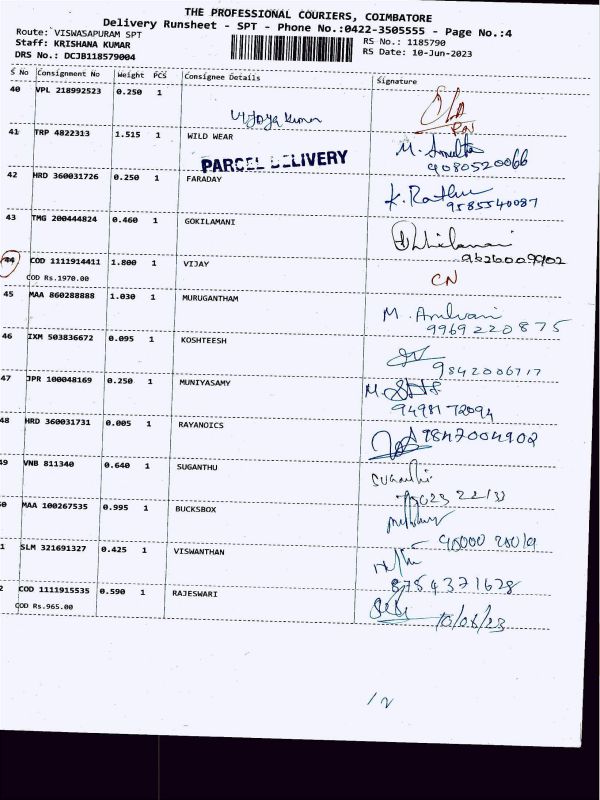 THE PROFESSIONAL COURIERS, COIMBATORE
Delivery Runsheet - SPT - Phone No.:0422-3505555 - Page No.:4
Route: VISWASAPURAM SPT
Staff: KRISHANA KUMAR
DRS No.: DCJB118579004
RS No.: 1185790
RS Date: 10-Jun-2023
S No Consignment No Weight PCS Consignee Details Signature
40 VPL 218992523 0.250 1
41 TRP 4822313 1.515 1 WILD WEAR
PARCEL DELIVERY
9080520066
42 HRD 360031726 0.250 1 FARADAY
9585540087
43 TMG 200444824 0.460 1 GOKILAMANI
44 COD 1111914411 1.800 1 VIJAY
COD Rs.1970.00 CN
45 MAA 860288888 1.030 1 MURUGANTHAM
9969220875
46 IXM 503836672 0.095 1 KOSHTEESH
9842006717
47 JPR 100048169 0.250 1 MUNIYASAMY
9498172094
48 HRD 360031731 0.005 1 RAYANOICS
9847004902
49 VNB 811340 0.640 1 SUGANTHU
0 MAA 100267535 0.995 1 BUCKSBOX
1 SLM 321691327 0.425 1 VISWANTHAN
8754371628
2 COD 1111915535 0.590 1 RAJESWARI
COD Rs.965.00 10/06/23
12